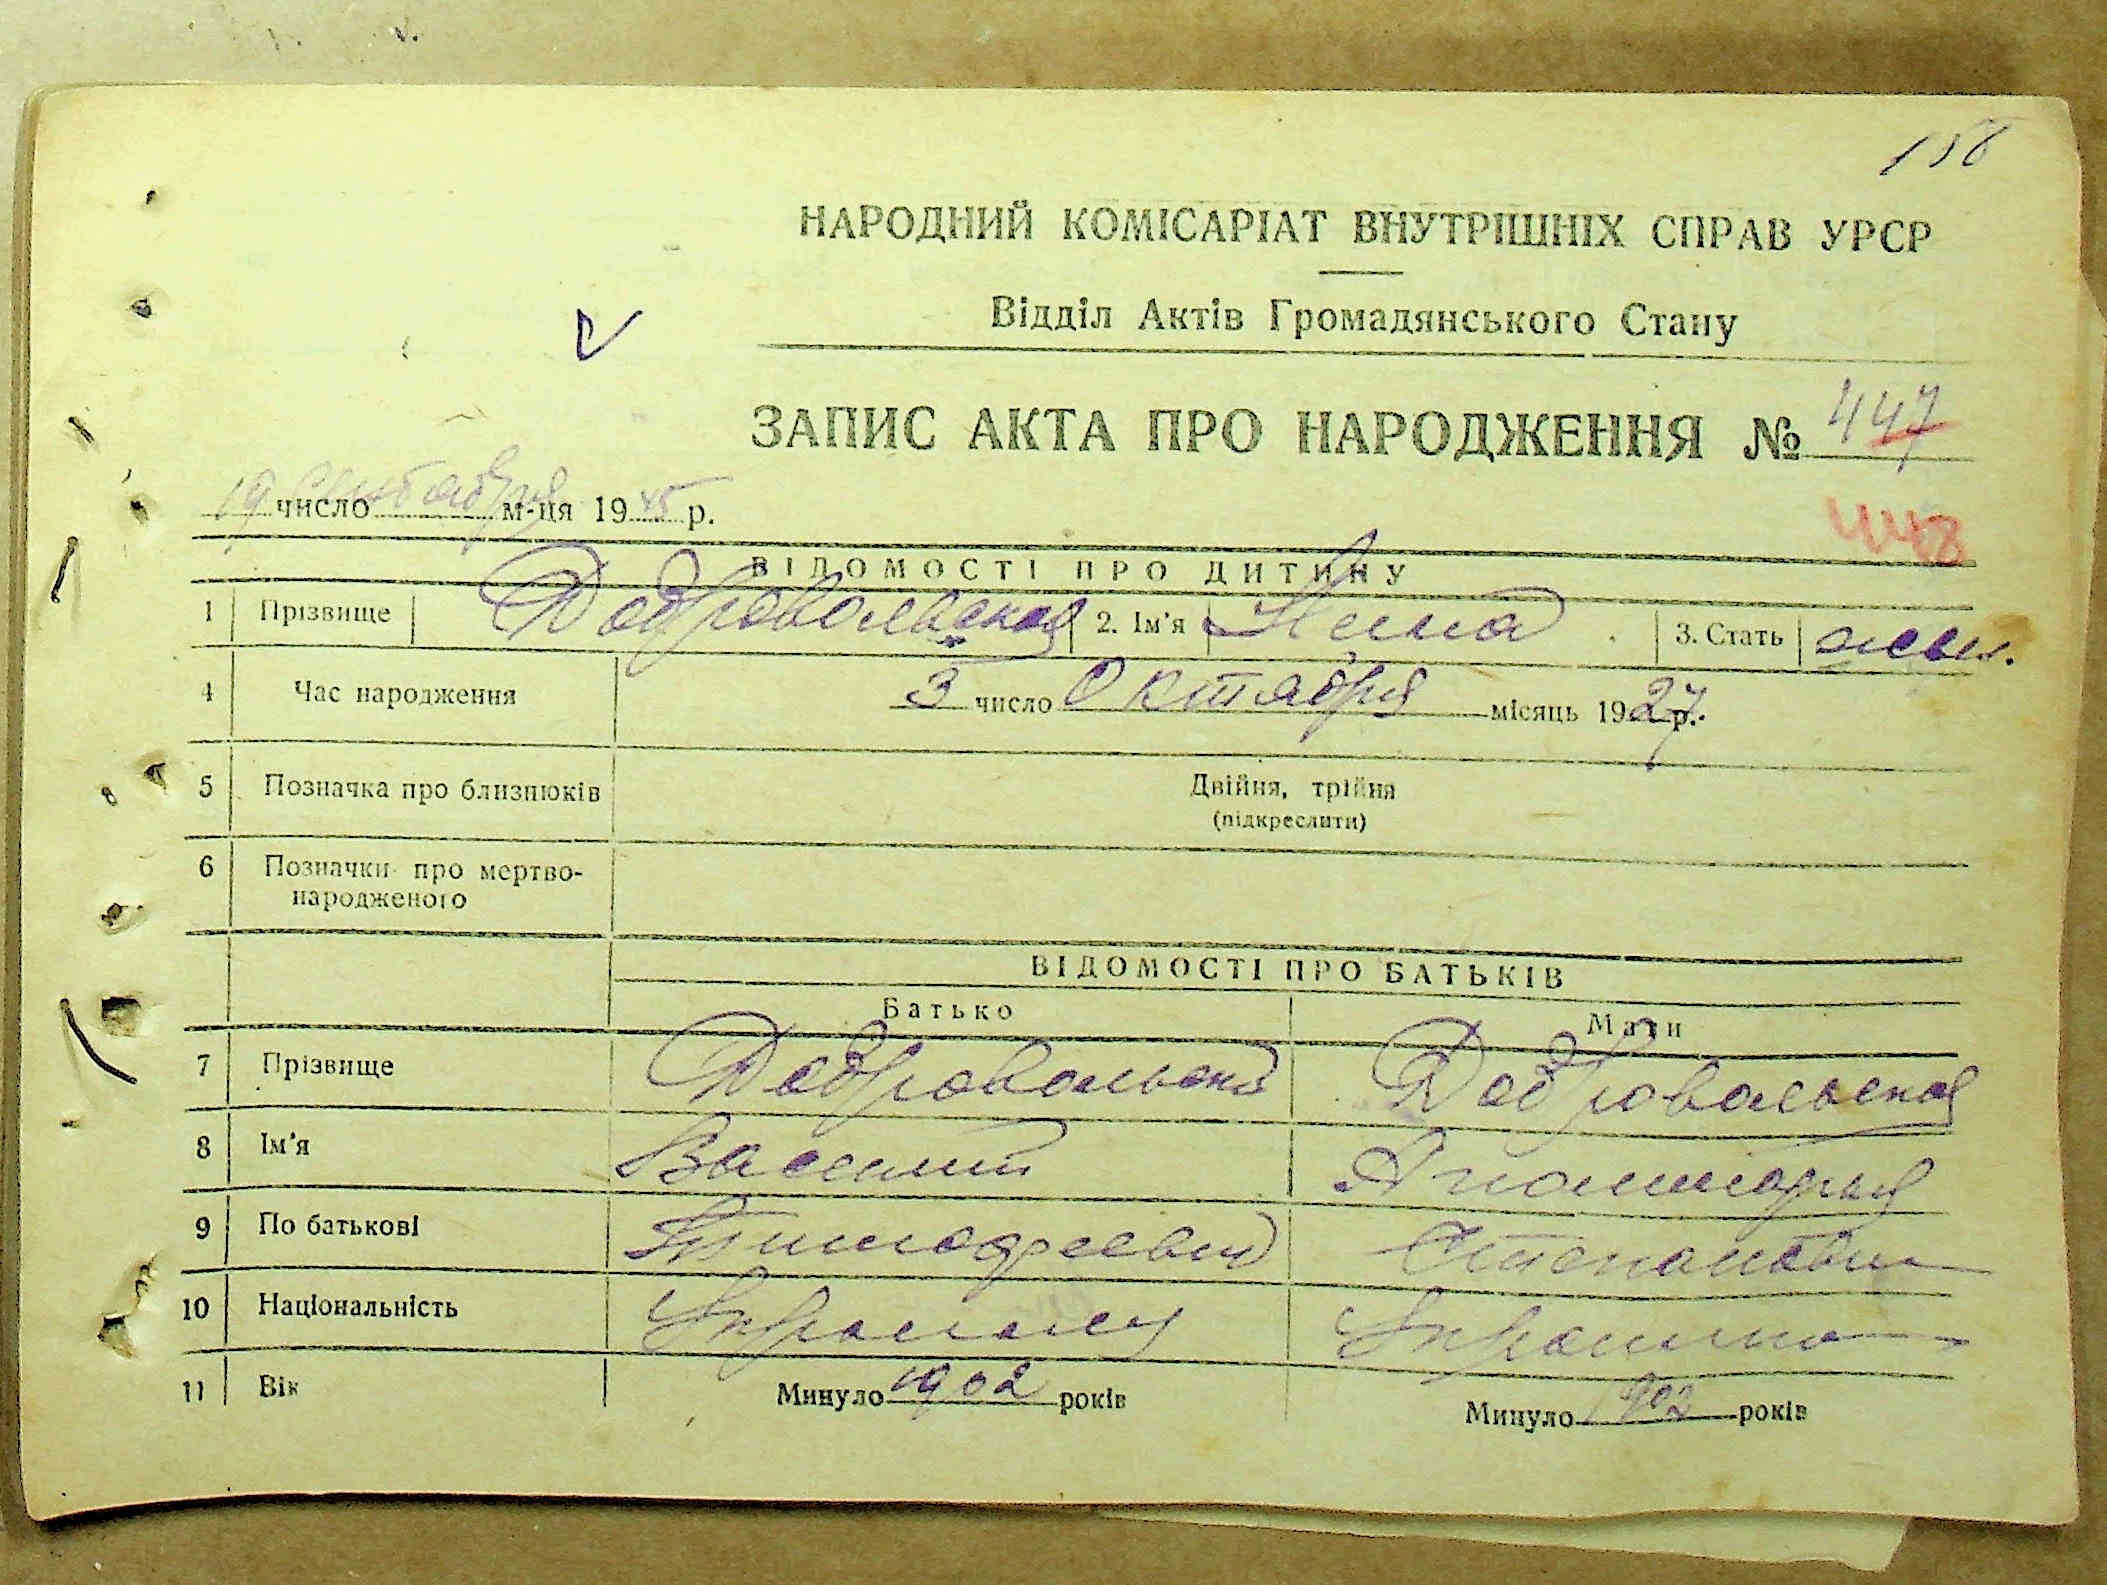 156
НАРОДНИЙ КОМІСАРІАТ ВНУТРІШНІХ СПРАВ УРСР
Відділ Актів Громадянського Стану
ЗАПИС АКТА ПРО НАРОДЖЕННЯ № 447
448
19 число сентября м-ця 1945 р.
ВІДОМОСТІ ПРО ДИТИНУ
1 Прізвище Добровольская 2. Ім'я Нина 3. Стать жен.
4 Час народження 3 число Октября місяць 1927 р.
5 Позначка про близнюків Двійня, трійня
(підкреслити)
6 Позначки про мертво-
народженого
ВІДОМОСТІ ПРО БАТЬКІВ
Батько Мати
7 Прізвище Добровольский Добровольская
8 Ім'я Василий
9 По батькові Тимофеевич Степановна
10 Національність Украинец Украинка
11 Вік Минуло 1902 років Минуло 1902 років